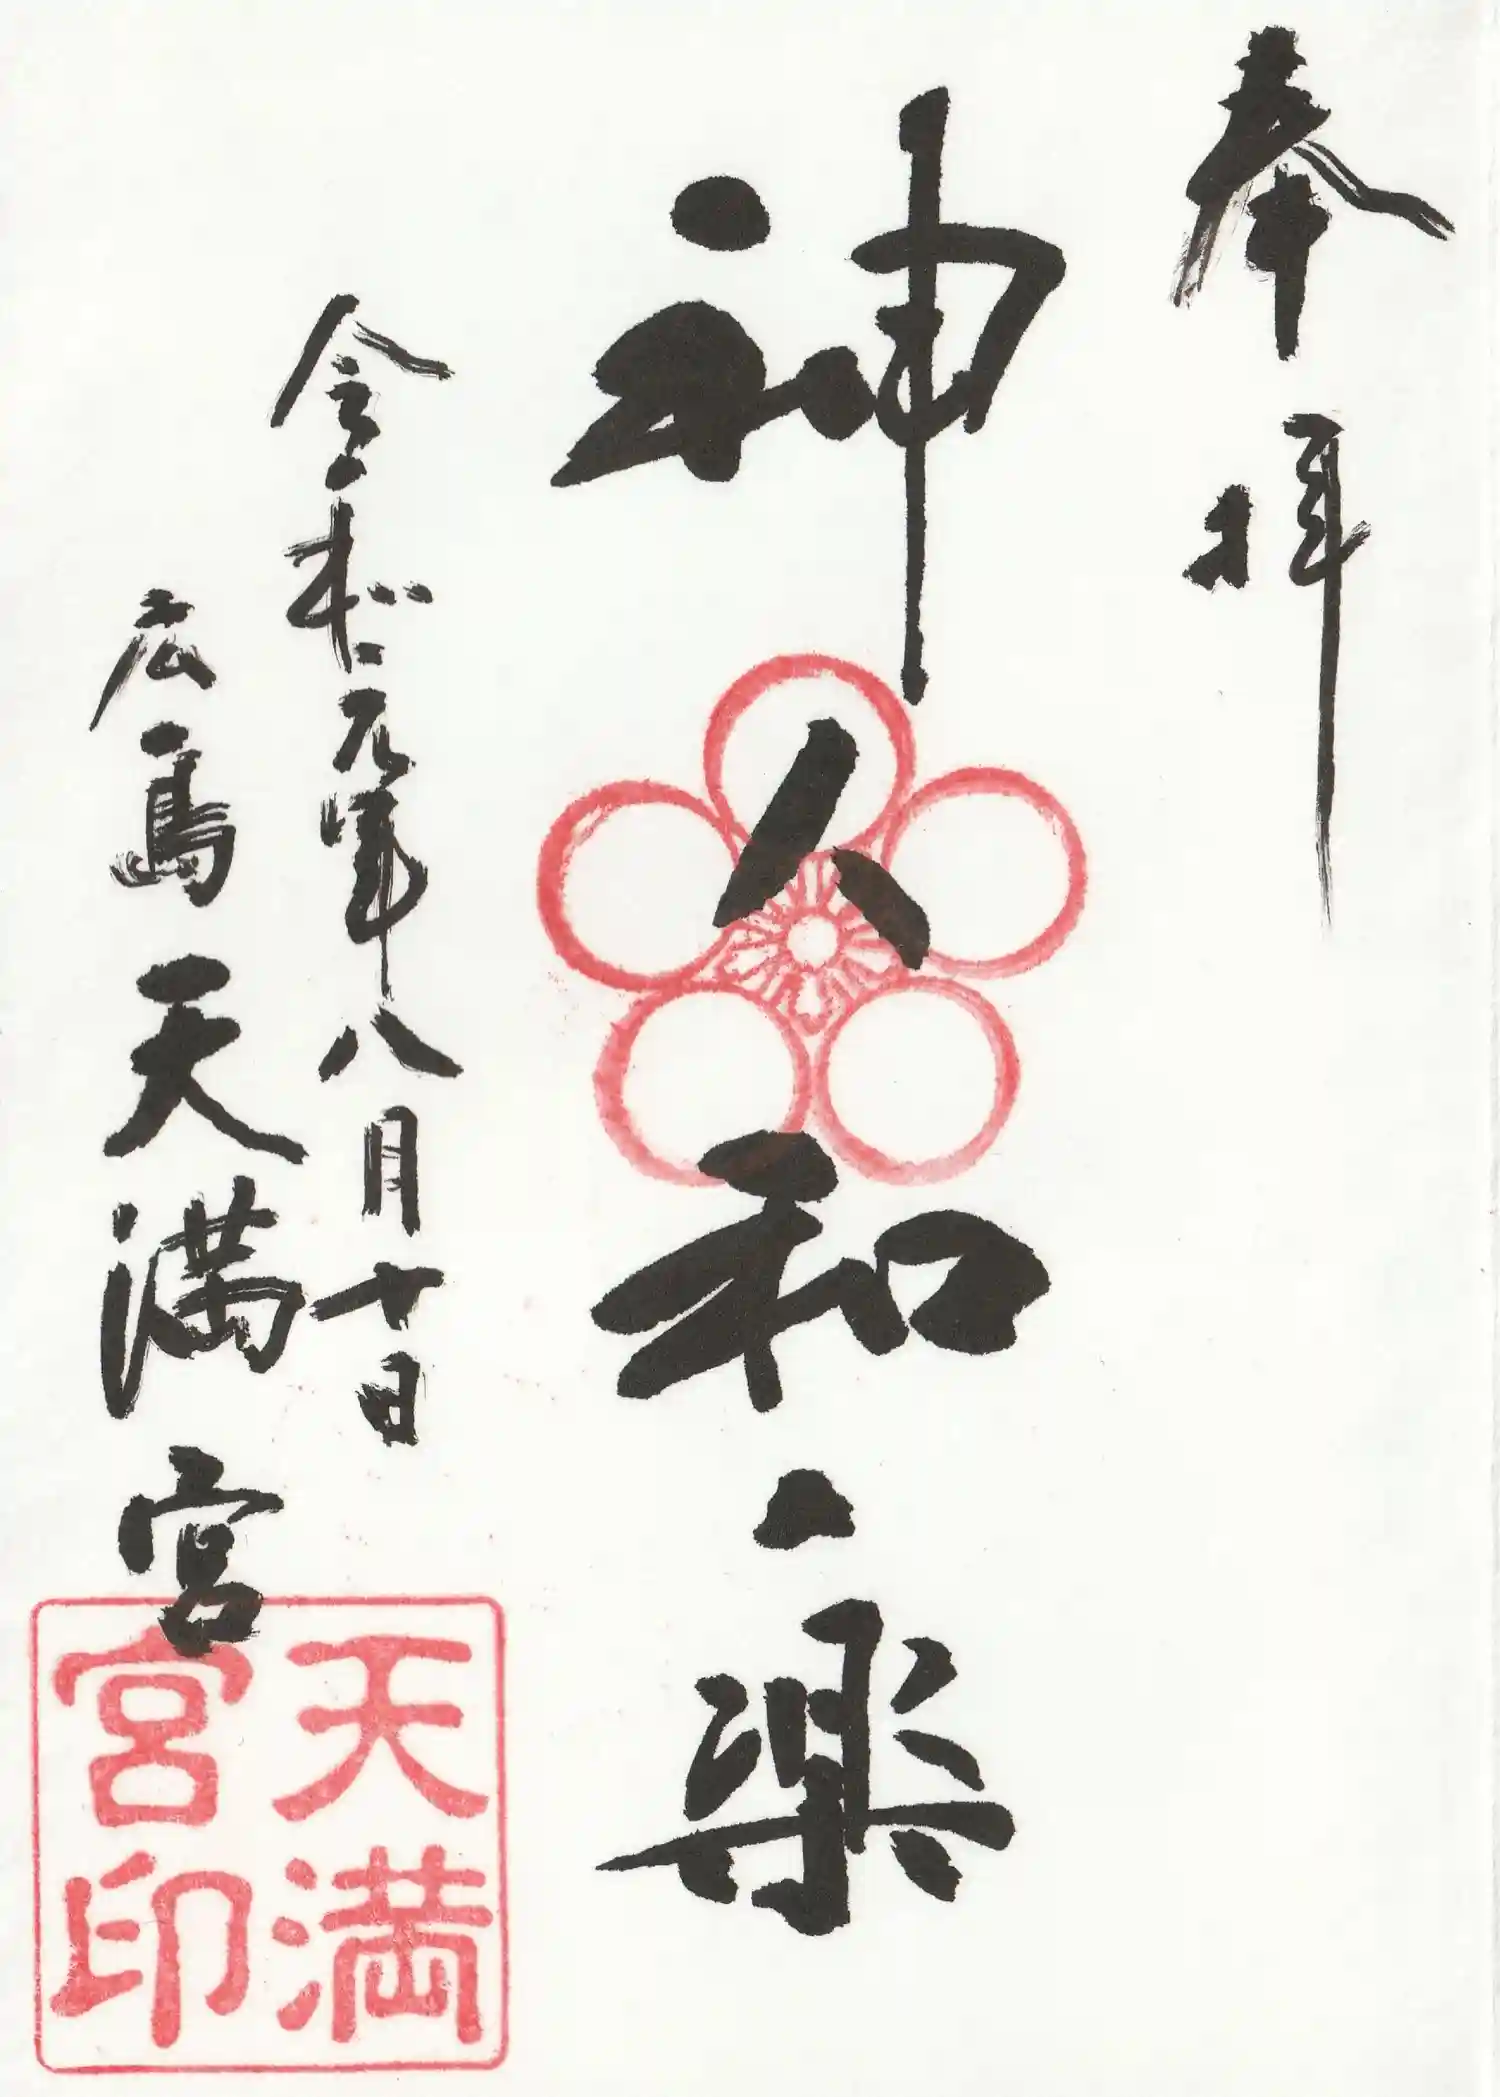 奉拝
神人和・楽
令和元年八月十日
広島天満宮
天満宮印